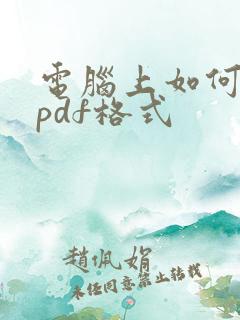 電腦上如何
pdf格式
趙佩娟
未任同意禁止轉載